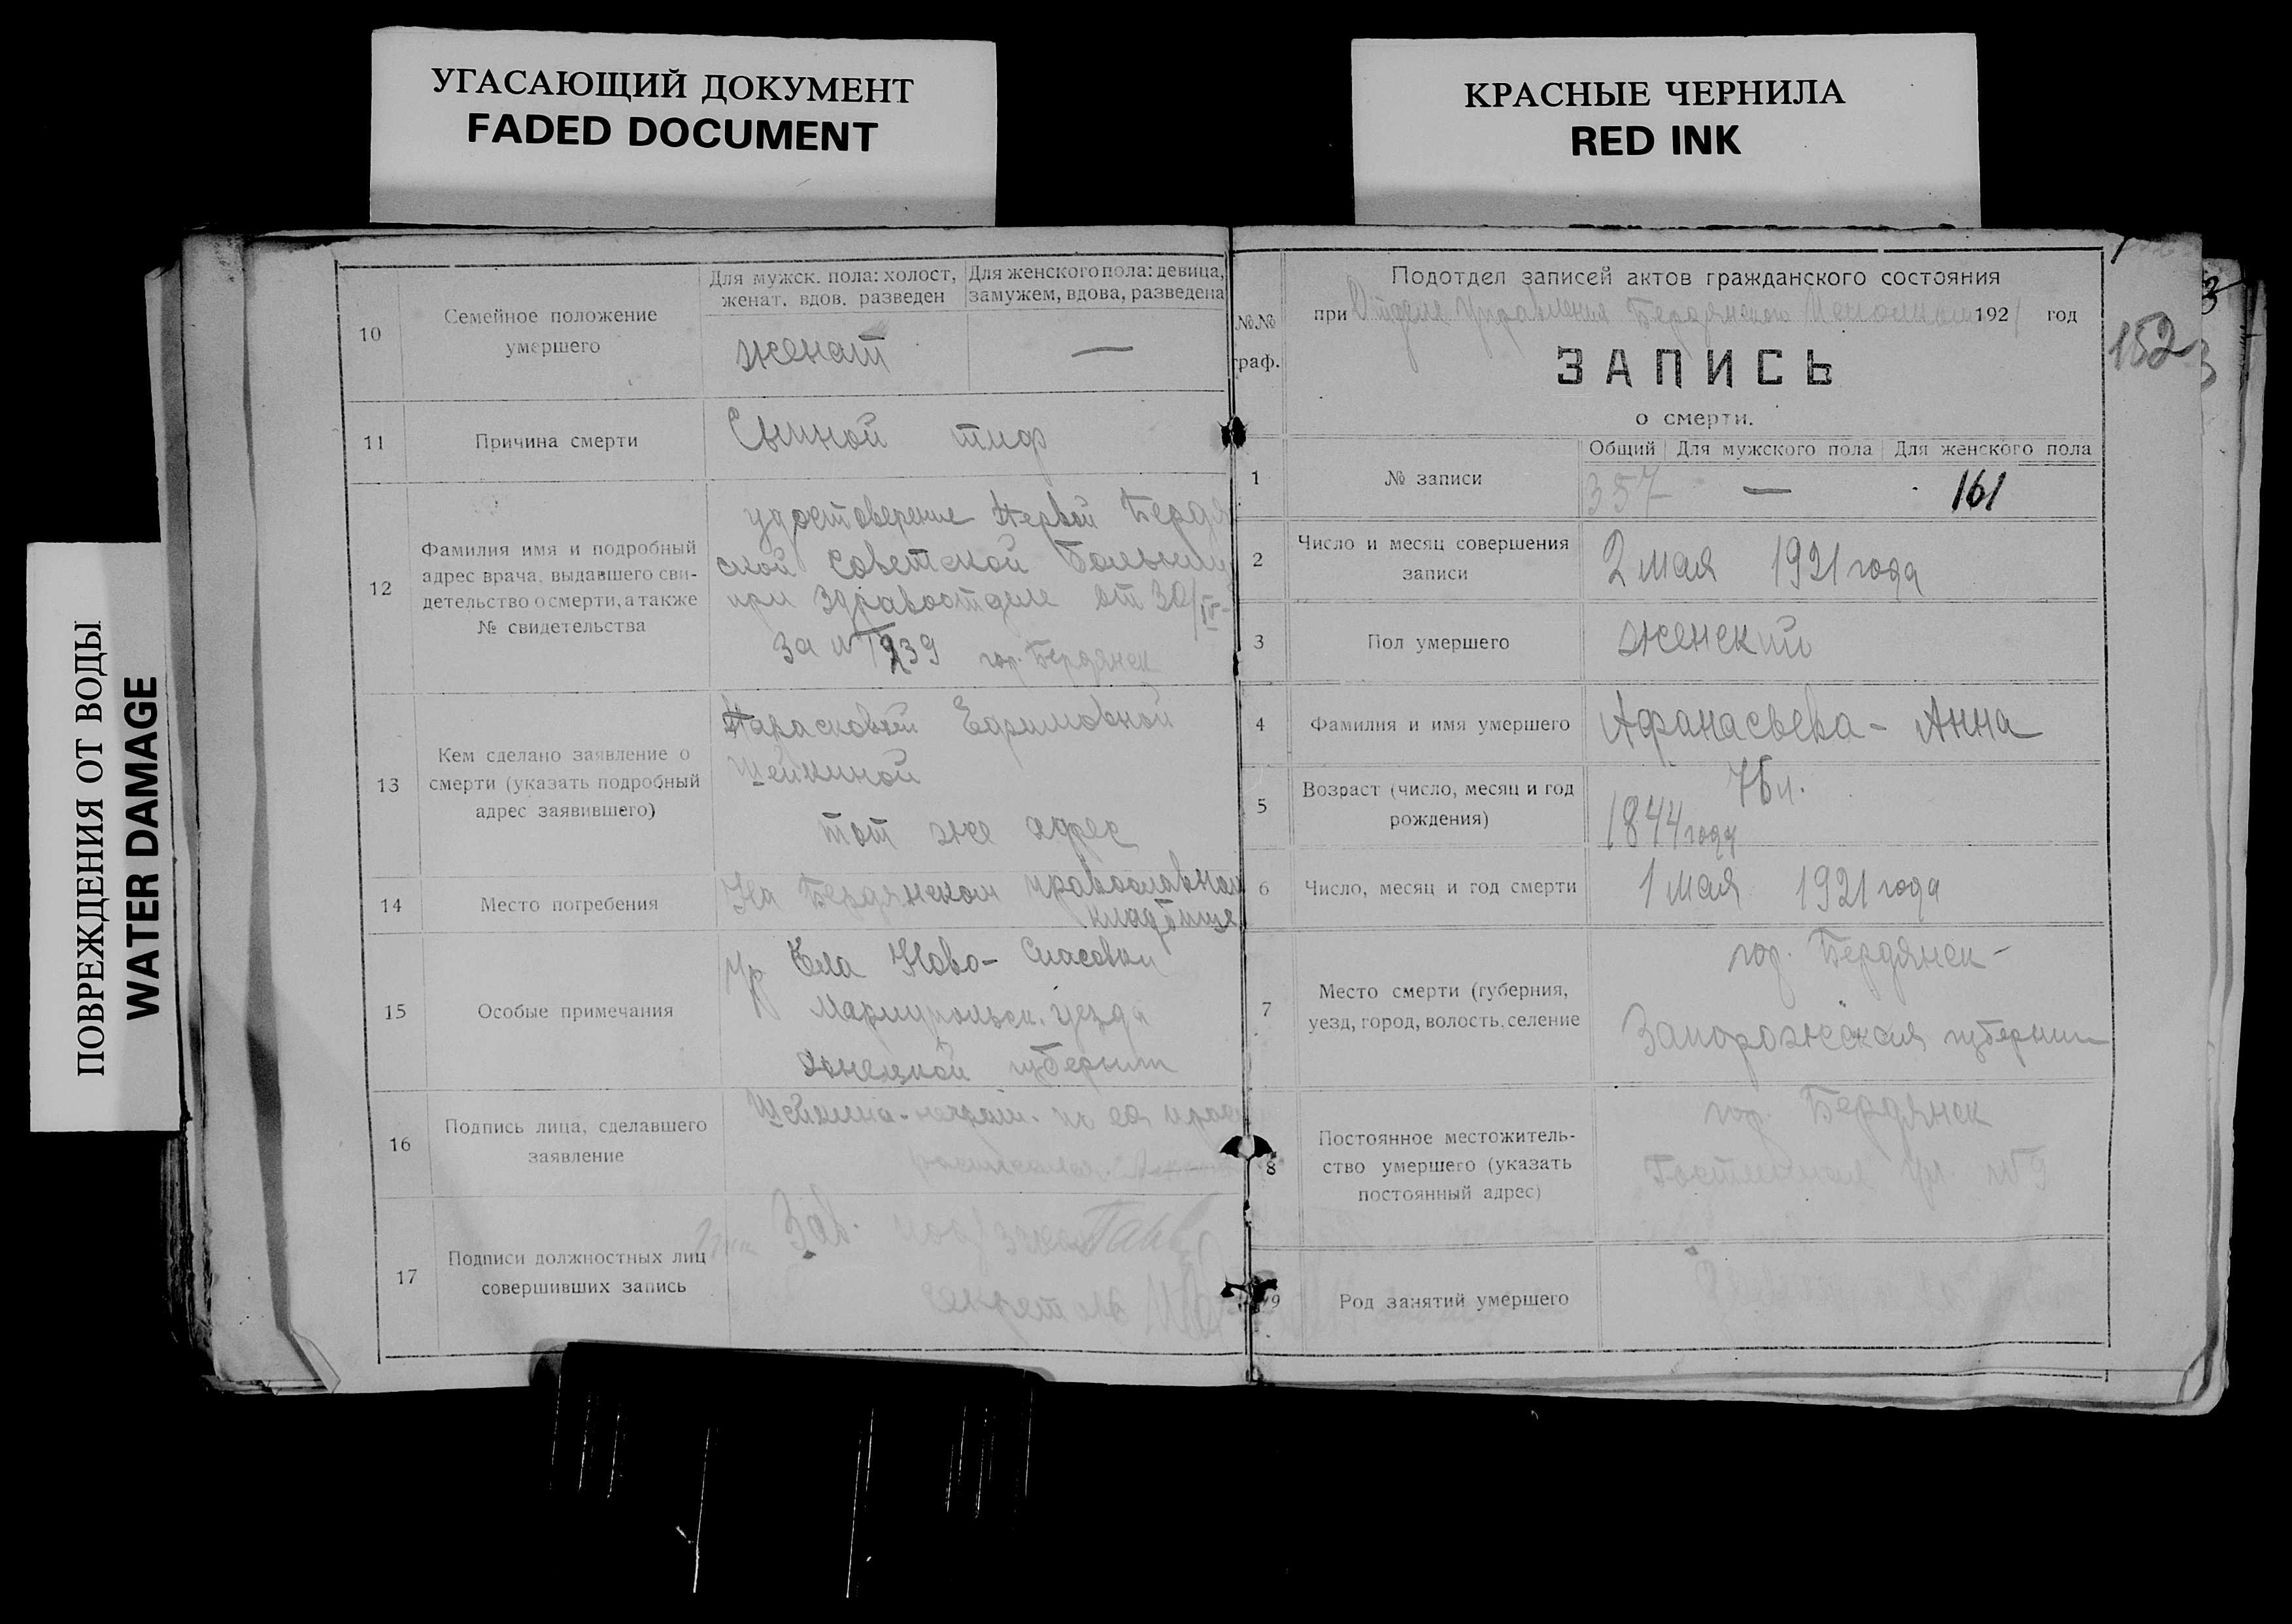 УГАСАЮЩИЙ ДОКУМЕНТ
FADED DOCUMENT
КРАСНЫЕ ЧЕРНИЛА
RED INK
ПОВРЕЖДЕНИЯ ОТ ВОДЫ
WATER DAMAGE
10
Семейное положение
умершего
Для мужск. пола: холост,
женат, вдов. разведен
Для женского пола: девица,
замужем, вдова, разведена
женат
—
11
Причина смерти
Сыпной тиф
12
Фамилия имя и подробный
адрес врача, выдавшего сви-
детельство о смерти, а также
№ свидетельства
удостоверение Первой Бердя
ской Советской Больниц
при Здравоотделе от 30/IV-
за № 239 гор. Бердянск
13
Кем сделано заявление о
смерти (указать подробный
адрес заявившего)
Парасковией Ефимовной
Шейкиной
тот же адрес
14
Место погребения
На Бердянском православном
кладбище
15
Особые примечания
Ур Села Ново-Спасовки
Мариупольск. уезда
Донецкой губернии
16
Подпись лица, сделавшего
заявление
Шейкина - неграм. по ея прос
расписался
17
Подписи должностных лиц
совершивших запись
Зав.
секретарь
Подотдел записей актов гражданского состояния
при Отделе Управления Бердянского Исполкома 1921 год
152
№№
граф.
ЗАПИСЬ
о смерти.
1
№ записи
Общий
Для мужского пола
Для женского пола
357
—
161
2
Число и месяц совершения
записи
2 мая 1921 года
3
Пол умершего
женский
4
Фамилия и имя умершего
Афанасьева - Анна
5
Возраст (число, месяц и год
рождения)
76 л.
1844 года
6
Число, месяц и год смерти
1 мая 1921 года
7
Место смерти (губерния,
уезд, город, волость, селение
гор. Бердянск -
Запорожская губернии
8
Постоянное местожитель-
ство умершего (указать
постоянный адрес)
гор. Бердянск
ул № 9
9
Род занятий умершего